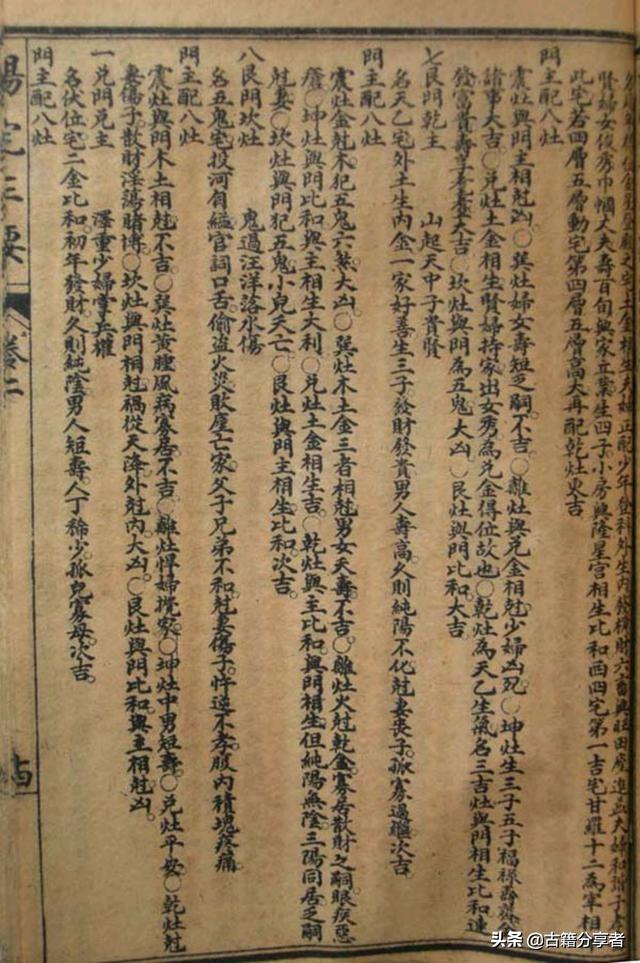 腎婦女俊秀巾幗丈夫壽百旬興家立業生四子小房興隆星宮相生比和西四宅第一吉宅甘羅十二為宰相
此宅若四層五層動宅第四層五層高大再配乾灶大吉
門主配八灶
震灶與門主相尅凶〇巽灶婦女壽短乏嗣不吉〇離灶與兌金相尅少婦凶死〇坤灶生三子五子福祿壽
諸事大吉〇兌灶土金相生賢婦持家出女秀為兌金得位故也〇乾灶為天乙生氣名三吉灶與門相生比和連
發富貴壽大吉〇坎灶與門為五鬼大凶〇艮灶與門比和大吉
七艮門乾主 山起天中子貴賢
名天乙宅外土生內金一家好善生三子發財發貴男人壽高久則純陽不化尅妻喪子孤寡過繼次吉
門主配八灶
震灶金尅木犯五鬼六煞大凶〇巽灶木土金三者相尅男女夭壽不吉〇離灶火尅乾金寡居散財乏嗣眼疾惡
瘡〇坤灶與門比和與主相生大利〇兌灶土金相生吉〇乾灶與主比和與門相生但純陽無陰三陽同居乏嗣
尅妻〇坎灶與門犯五鬼小兒夭亡〇艮灶與門主相生比和次吉
八艮門坎灶 鬼過汪洋落水傷
名五鬼宅投河自縊官詞口舌偷盜火災敗屋亡家父子兄弟不和尅妻傷子忤逆不孝股內積塊疼痛
門主配八灶
震灶與門木土相尅不吉〇巽灶黃腫風病寡居不吉〇離灶悍婦攪家〇坤灶中男短壽〇兌灶平安〇乾灶尅
妻傷子散財淫蕩賭博〇坎灶與門相尅禍從天降外尅內大凶〇艮灶與門比和與主相尅凶
一兌門兌主 澤重少婦掌兵權
名伏位宅二金比和初年發財久則純陰男人短壽人丁稀少孤兒寡母次吉
門主配八灶
陽宅三要 卷二
十四
头条 @古籍分享者